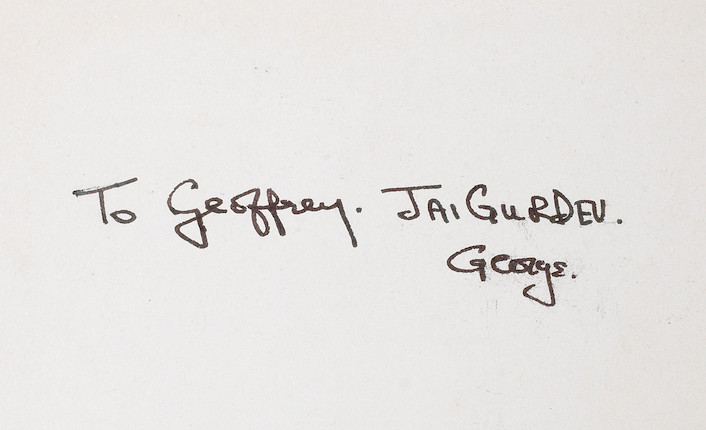 To Geoffrey. JAI GURDEV.
George.